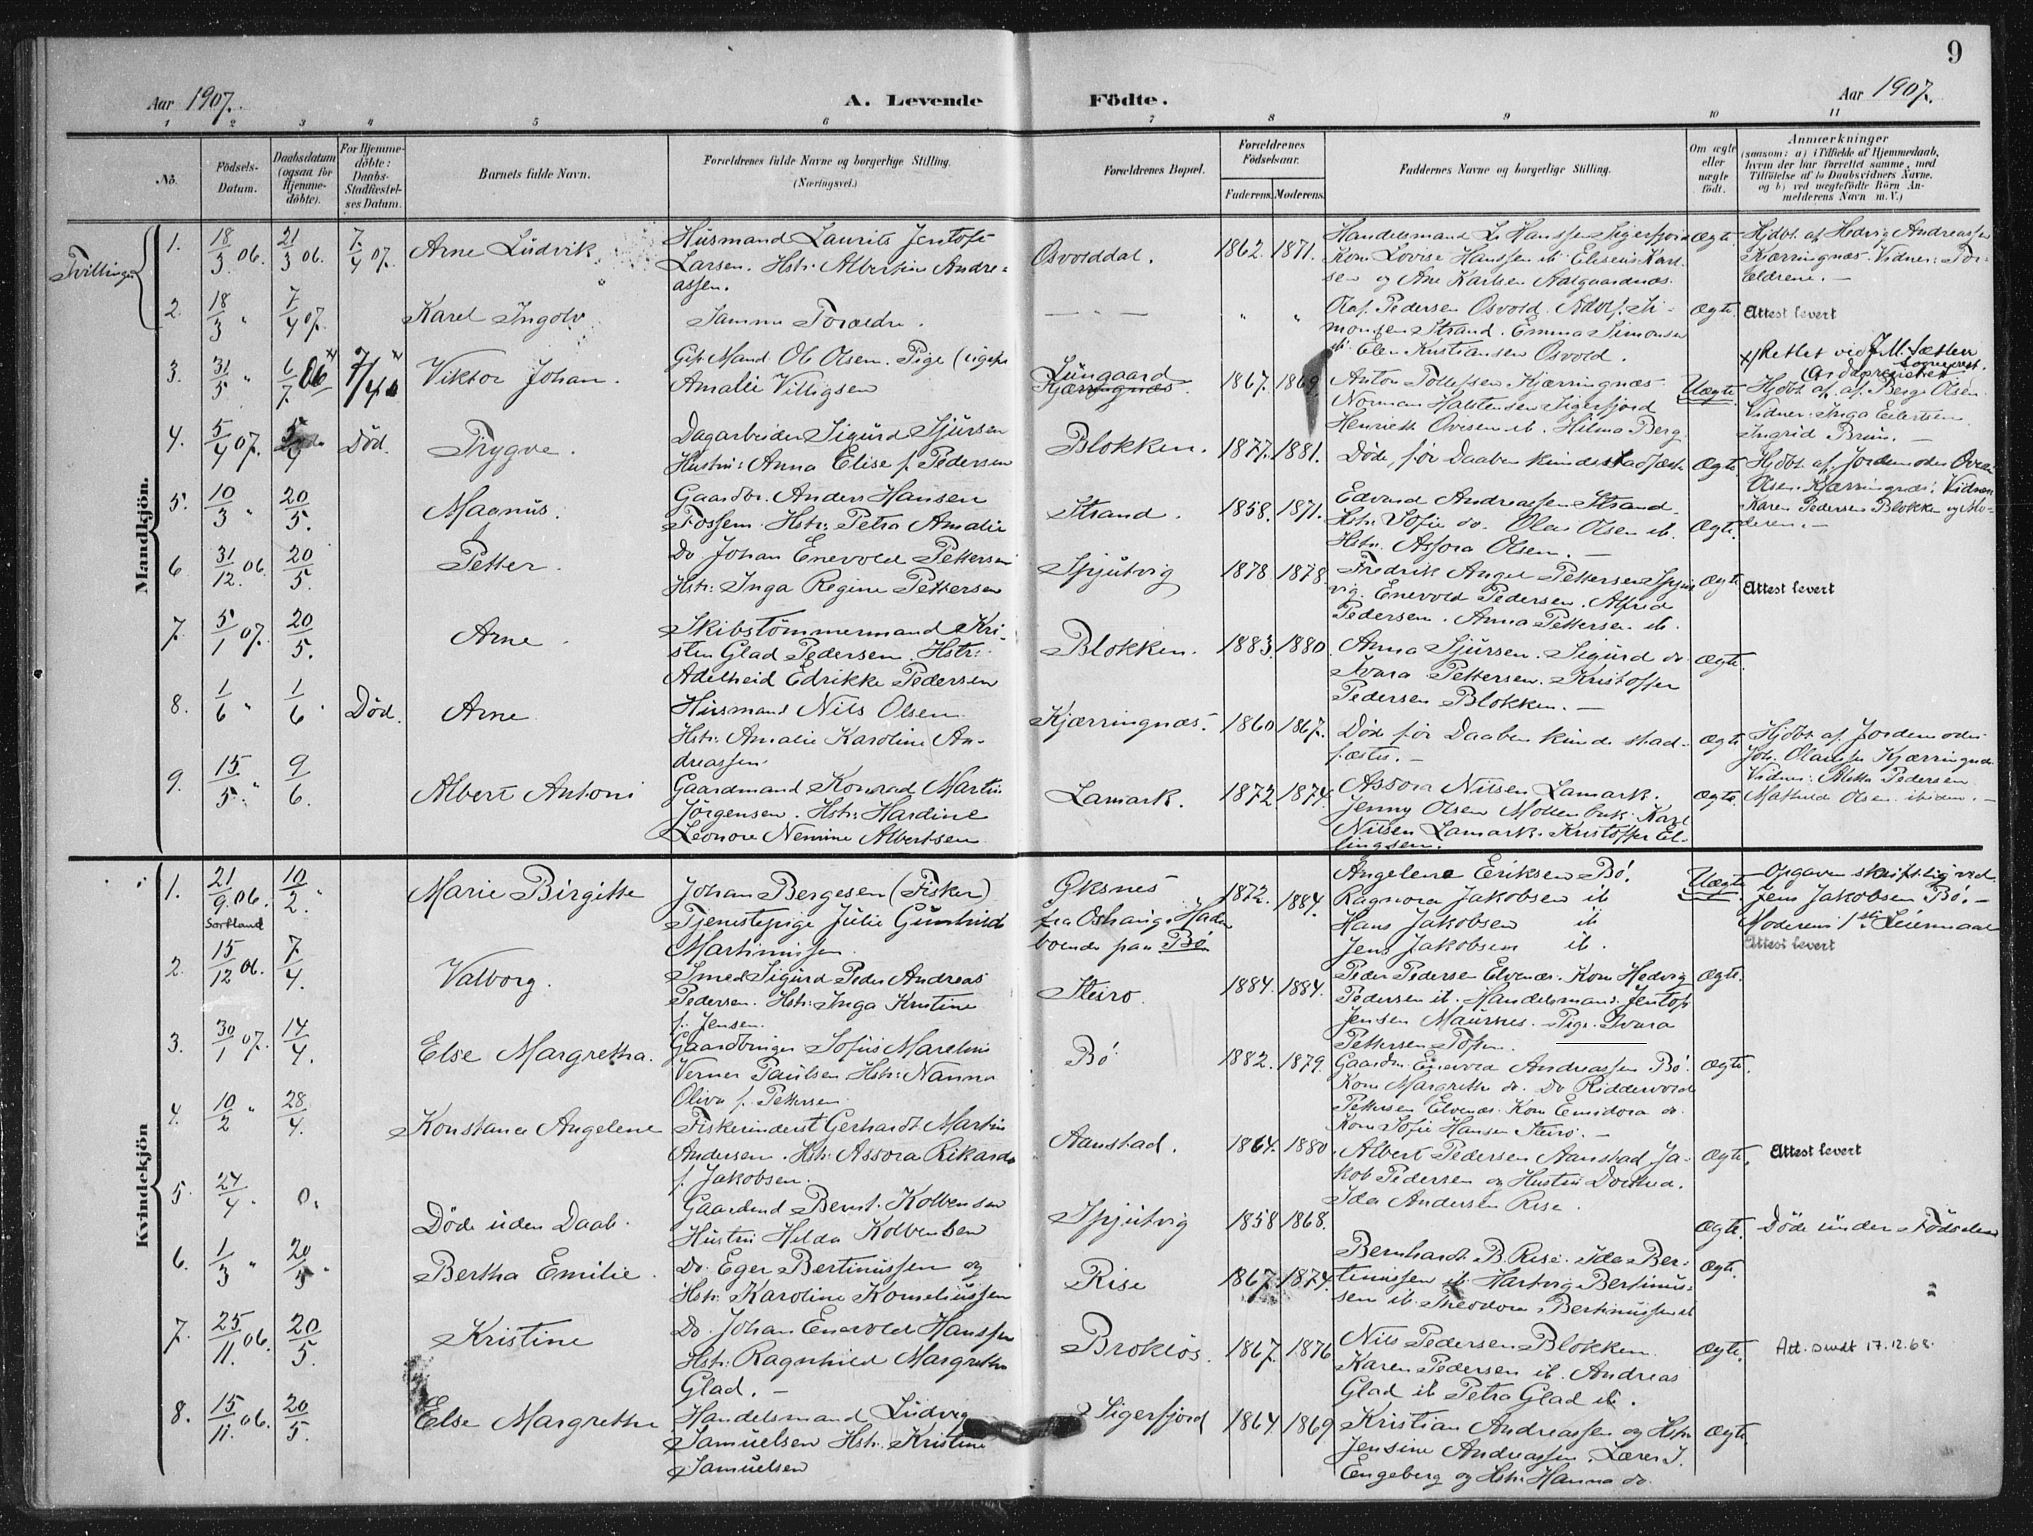 9
Aar 1907.
A. Levende
Födte.
Aar 1907.
1 2 3 4 5 6 7 8 9 10 11
No.
Födsels-Datum.
Daabsdatum (ogsaa for Hjemmedöbte).
For Hjemmedöbte: Daabs-Stadfæstelses Datum.
Barnets fulde Navn.
Forældrenes fulde Navne og borgerlige Stilling. (Næringsvei.)
Forældrenes Bopæl.
Forældrenes Födselsaar.
Faderens. Moderens.
Faddernes Navne og borgerlige Stilling.
Om ægte eller uægte födt.
Anmærkninger
(saasom: a) i Tilfælde af Hjemmedaab,
hvem der har forrettet samme, med
Tilföielse af to Daabsvidners Navne,
og b) ved uægtefödte Börn Anmelderens Navn m. V.)
Mandkjön.
Tvillinger
1. 18/3 06. 21/3 06. 7/4 07. Arne Ludvik.
Husmand Laurits Jentoft
Larsen. Hstr: Albertine Andre-
assen.
Osvolddal. 1862. 1871.
Handelsmand L. Hanssen Sigerfjord
Kone Lovise Hanssen ib. Eliseus Karl-
sen og Ane Karlsen Aalgaardnæs.
Ægte
Hjdbt. af Hedvig Andreassen
Kjærringnæs. Vidner: For-
ældrene. —
2. 18/3 " 7/4 07. Karel Ingolv
Samme Forældre.
— " — " "
Olaf Pedersen Osvold. Adolf Si-
monsen Strand. Emma Simonsen
ib. Elen Kristiansen Osvold.
Ægte. Attest levert
3. 31/5 " 6/7 06 x) 7/4 Viktor Johan.
Gift Mand Ole Olsen. Pige (ugift)
Amalie Villigsen
Lungaard
Kjærringnæs. 1867. 1869.
Anton Tollefsen Kjærringnæs
Norman Halstensen Sigerfjord
Henriette Ovesen ib. Hilma Berg.
Uægte
x) Rettet ved J. M. Sætter
Sogneprest.
Hjdbt. af Berge Olsen
Vidner: Inga Eilertsen
Ingrid Bruun. —
4. 5/4 07. 5/4 Död. Trygve.
Dagarbeider Sigurd Sjursen
Hustru: Anna Elise f. Pedersen
Blokken. 1877. 1881.
Döde, för Daaben kunde stadfæst.
Ægte
Hjdbt. af Jordemoder Oveli
Olsen. Kjærringnæs. Vidner
Karen Pedersen Blokken og Mo-
deren. —
5. 10/3 " 20/5. Magnus.
Gaardbr. Anders Hansen
Fossem. Hstr: Petra Amalie
Strand. 1858. 1871.
Edvard Andreassen Strand.
Hstr. Sofie do. Olea Olsen ib.
Hstr. Assora Olsen. —
Ægte.
6 31/12. 06. 20/5. Petter.
Do Johan Enevold Pettersen
Hstr: Inga Regine Pettersen
Spjutvig 1878. 1878.
Fredrik Angel Pettersen Spjut-
vig. Enevold Pedersen. Alfred
Pedersen. Anna Pettersen ib.
Ægte. Attest levert
7. 5/1 07. 20/5. Arne.
Skibstömmermand Kri-
sten Glad Pedersen. Hstr:
Adelheid Edrikke Pedersen
Blokken. 1883. 1880.
Anna Sjursen. Sigurd do.
Ivara Pettersen. Kristoffer
Pedersen Blokken. —
Ægte.
8. 1/6 " 1/6. Död. Arne
Husmand Nils Olsen.
Hstr: Amalie Karoline An-
dreassen.
Kjærringnæs. 1860. 1867.
Döde för Daaben kunde stad-
fæstes. —
Ægte
Hjdbt. af Jordemoder
Joh. Olaussen Kjærringnæs.
Vidner: Aletta Pedersen.
Mathilde Olsen ibidem. —
9. 15/5 ". 9/6. Albert Antoni
Gaardmand Konrad Martin
Jörgensen. Hstr: Hardine
Leonore Nemine Albertsen.
Lamark. 1872 1874.
Assora Nilsen Lamark.
Jenny Olsen Mollenbuk. Karl
Nilsen Lamark. Kristoffer El-
lingsen.
Ægte
Kvindekjön
1. 21/9 06. 10/2. " Marie Birgitte
Sortland
Johan Bergesen (Fisker)
Tjenestepige Julie Gunhild
Martinussen
Øksnes
fra Oshaug i Hadsel
boende paa Bö
1872. 1884.
Angelene Eriksen Bö.
Ragnora Jakobsen ib
Hans Jakobsen ib
Jens Jakobsen ib.
Uægte.
Opgaven skriftlig ved
Jens Jakobsen Bö. —
Moderens 1ste Leiermaal
Attest levert
2. 15/12 06. 7/4. Valborg.
Smed Sigurd Peder Andreas
Pedersen. Hstr: Inga Kristine
f. Jensen.
Steiro. 1884. 1884.
Peder Pedersen Elvenæs. Kone Hedvig
Pedersen ib. Handelsmand: Jentoft
Jensen Maurnes. Pige. Ivara
Pettersen Toften.
Ægte.
3. 30/1 07. 14/4. Else Margretha.
Gaardbruger Sofus Marelius
Verner Paulsen Hstr: Nanna
Oliva f. Pettersen.
Bö 1882. 1879.
Gaardm. Enevold Andreassen Bö.
Kone Margrethe do. Do Riddervold
Pettersen Elvenæs. Kone Emidora do.
Kone Sofie Hansen Steiro. —
Ægte.
4. 10/2 " 28/4. Konstance Angelene
Fiskerinderst Gerhardt Martin
Andersen. Hstr: Assora Rikarda
f. Jakobsen.
Aanstad. 1864. 1880.
Albert Pedersen Aanstad Ja-
kob Pedersen og Hustru Dorthea.
Ida Andersen Rise.
Ægte. Attest levert
5. 24/4 " 0. Döde uden Daab.
Gaardmd Bernt. Kolbensen
Hustru Hilda Kolbensen
Spjutvig 1858 1868.
Ægte. Döde under Födselen
6. 1/3 " 20/5 " Bertha Emilie.
Do. Eger Bertinussen og
Hstr: Karoline Korneliussen
Rise 1867. 1874.
Bernhardt B. Rise. Ida Ber-
tinussen ib. Hartvig Bertinus-
sen ib. Theodora Bertinussen ib
Ægte.
7. 25/11. 06. 20/5. Kristine
Do. Johan Enevold Hanssen
Hstr: Ragnhild Margrethe
Glad. —
Broklös. 1867. 1876
Nils Pedersen Blokken.
Karen Pedersen ib. Andreas
Glad ib Petra Glad ib.
Ægte. Att. sendt 17.12.68.
8. 15/11. 06. 20/5. Else Margrethe
Handelsmand Ludvig
Samuelsen Hstr. Kristine
Samuelsen
Sigerfjord 1864 1869
Kristian Andreassen og Hstr
Jensine Andreassen. Lærer I.
Engeberg og Hstr: Hanna do.
Ægte.